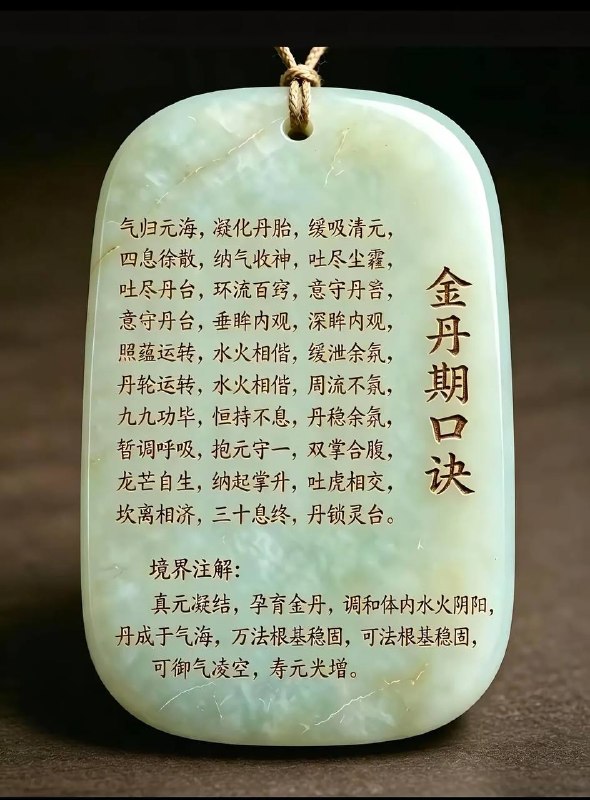 金丹期口诀
气归元海，凝化丹胎，缓吸清元，
四息徐散，纳气收神，吐尽尘霾，
吐尽丹台，环流百窍，意守丹
意守丹台，垂眸内观，深眸内观，
照蕴运转，水火相偕，缓泄余氛，
丹轮运转，水火相偕，周流不氛，
九九功毕，恒持不息，丹稳余氛，
暂调呼吸，抱元守一，双掌合腹，
龙芒自生，纳起掌升，吐虎相交，
坎离相济，三十息终，丹锁灵台。
境界注解：
真元凝结，孕育金丹，调和体内水火阴阳，
丹成于气海，万法根基稳固，可法根基稳固，
可御气凌空，寿元光增。